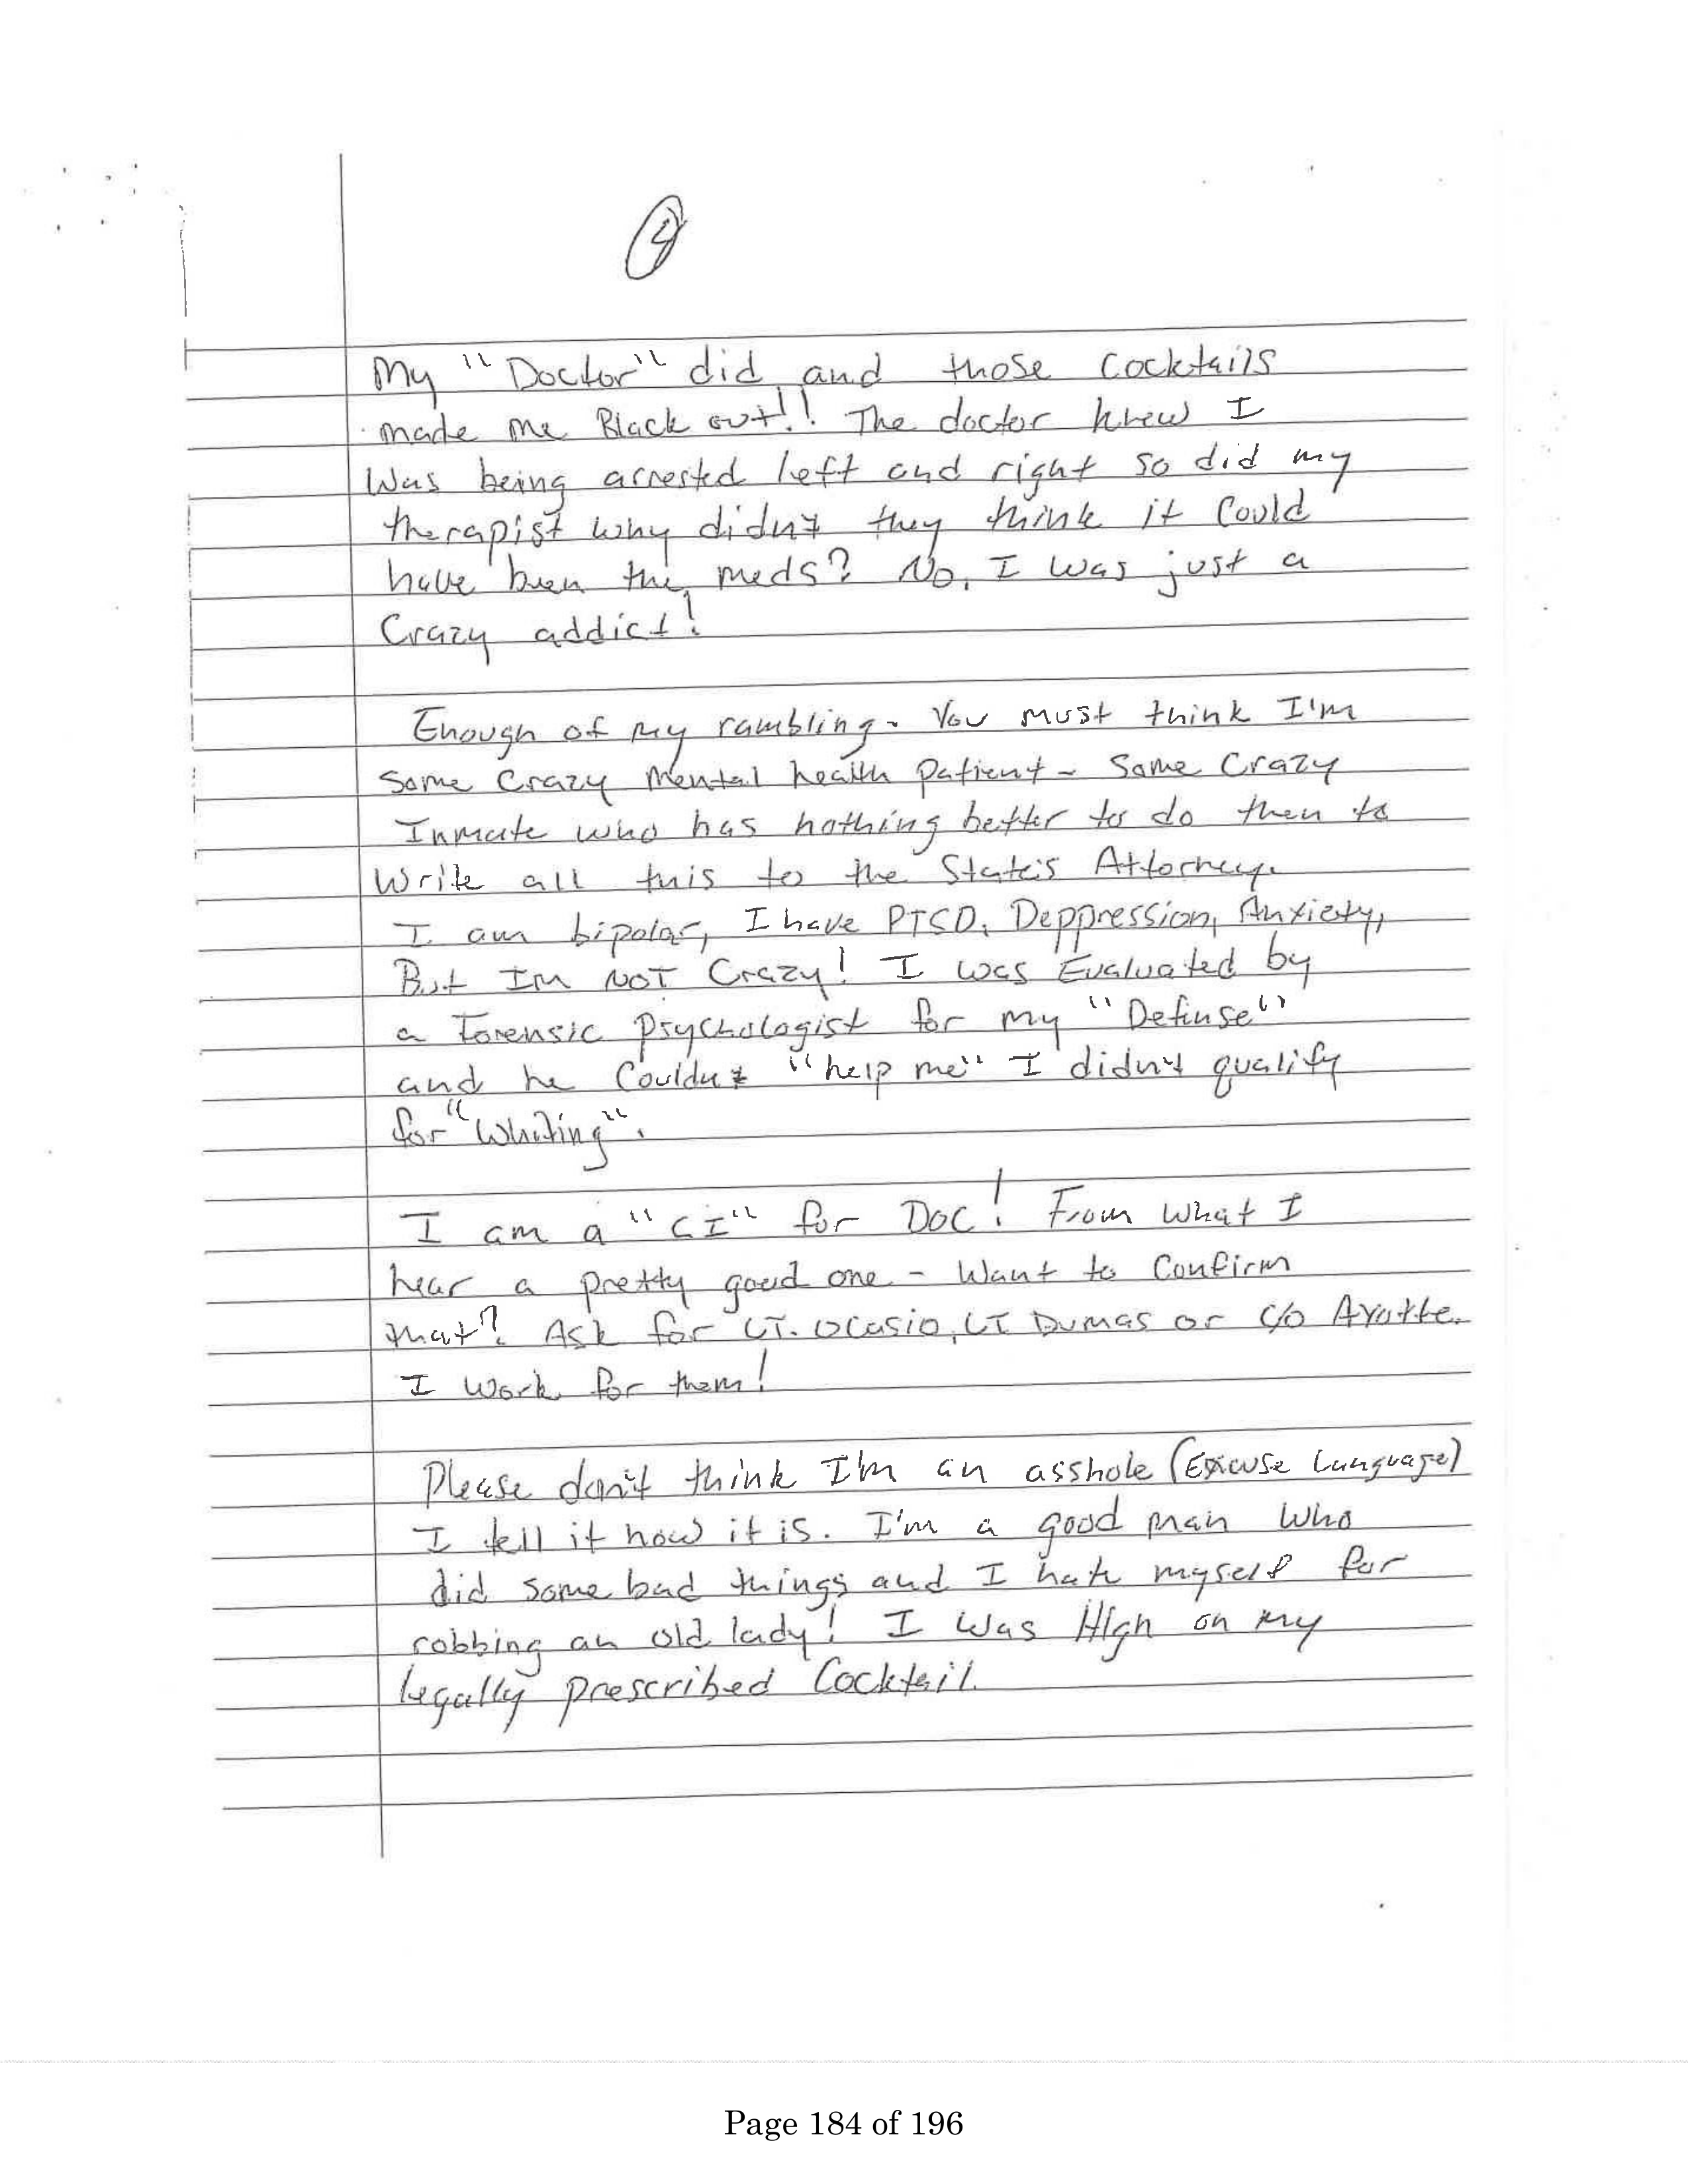 4
My "Doctor" did and those cocktails
made me Black out!! The doctor knew I
Was being arrested left and right so did my
therapist why didn't they think it Could
have been the meds? No, I was just a
Crazy addict!
Enough of my rambling - You must think I'm
some Crazy Mental health patient - Some Crazy
Inmate who has nothing better to do then to
Write all this to the State's Attorney.
I am bipolar, I have PTSD, Deppression, Anxiety,
But Im NOT Crazy! I was Evaluated by
a Forensic Psychologist for my "Defense"
and he Couldn't "help me" I didn't qualify
for "Whiting".
I am a "CI" for DOC! From what I
hear a pretty good one - Want to Confirm
that? Ask for LT. Ocasio, LT Dumas or C/O Ayotte.
I work for them!
Please don't think I'm an asshole (Excuse Language)
I tell it how it is. I'm a good man who
did some bad things and I hate myself for
robbing an old lady! I was High on my
legally prescribed Cocktail.
Page 184 of 196